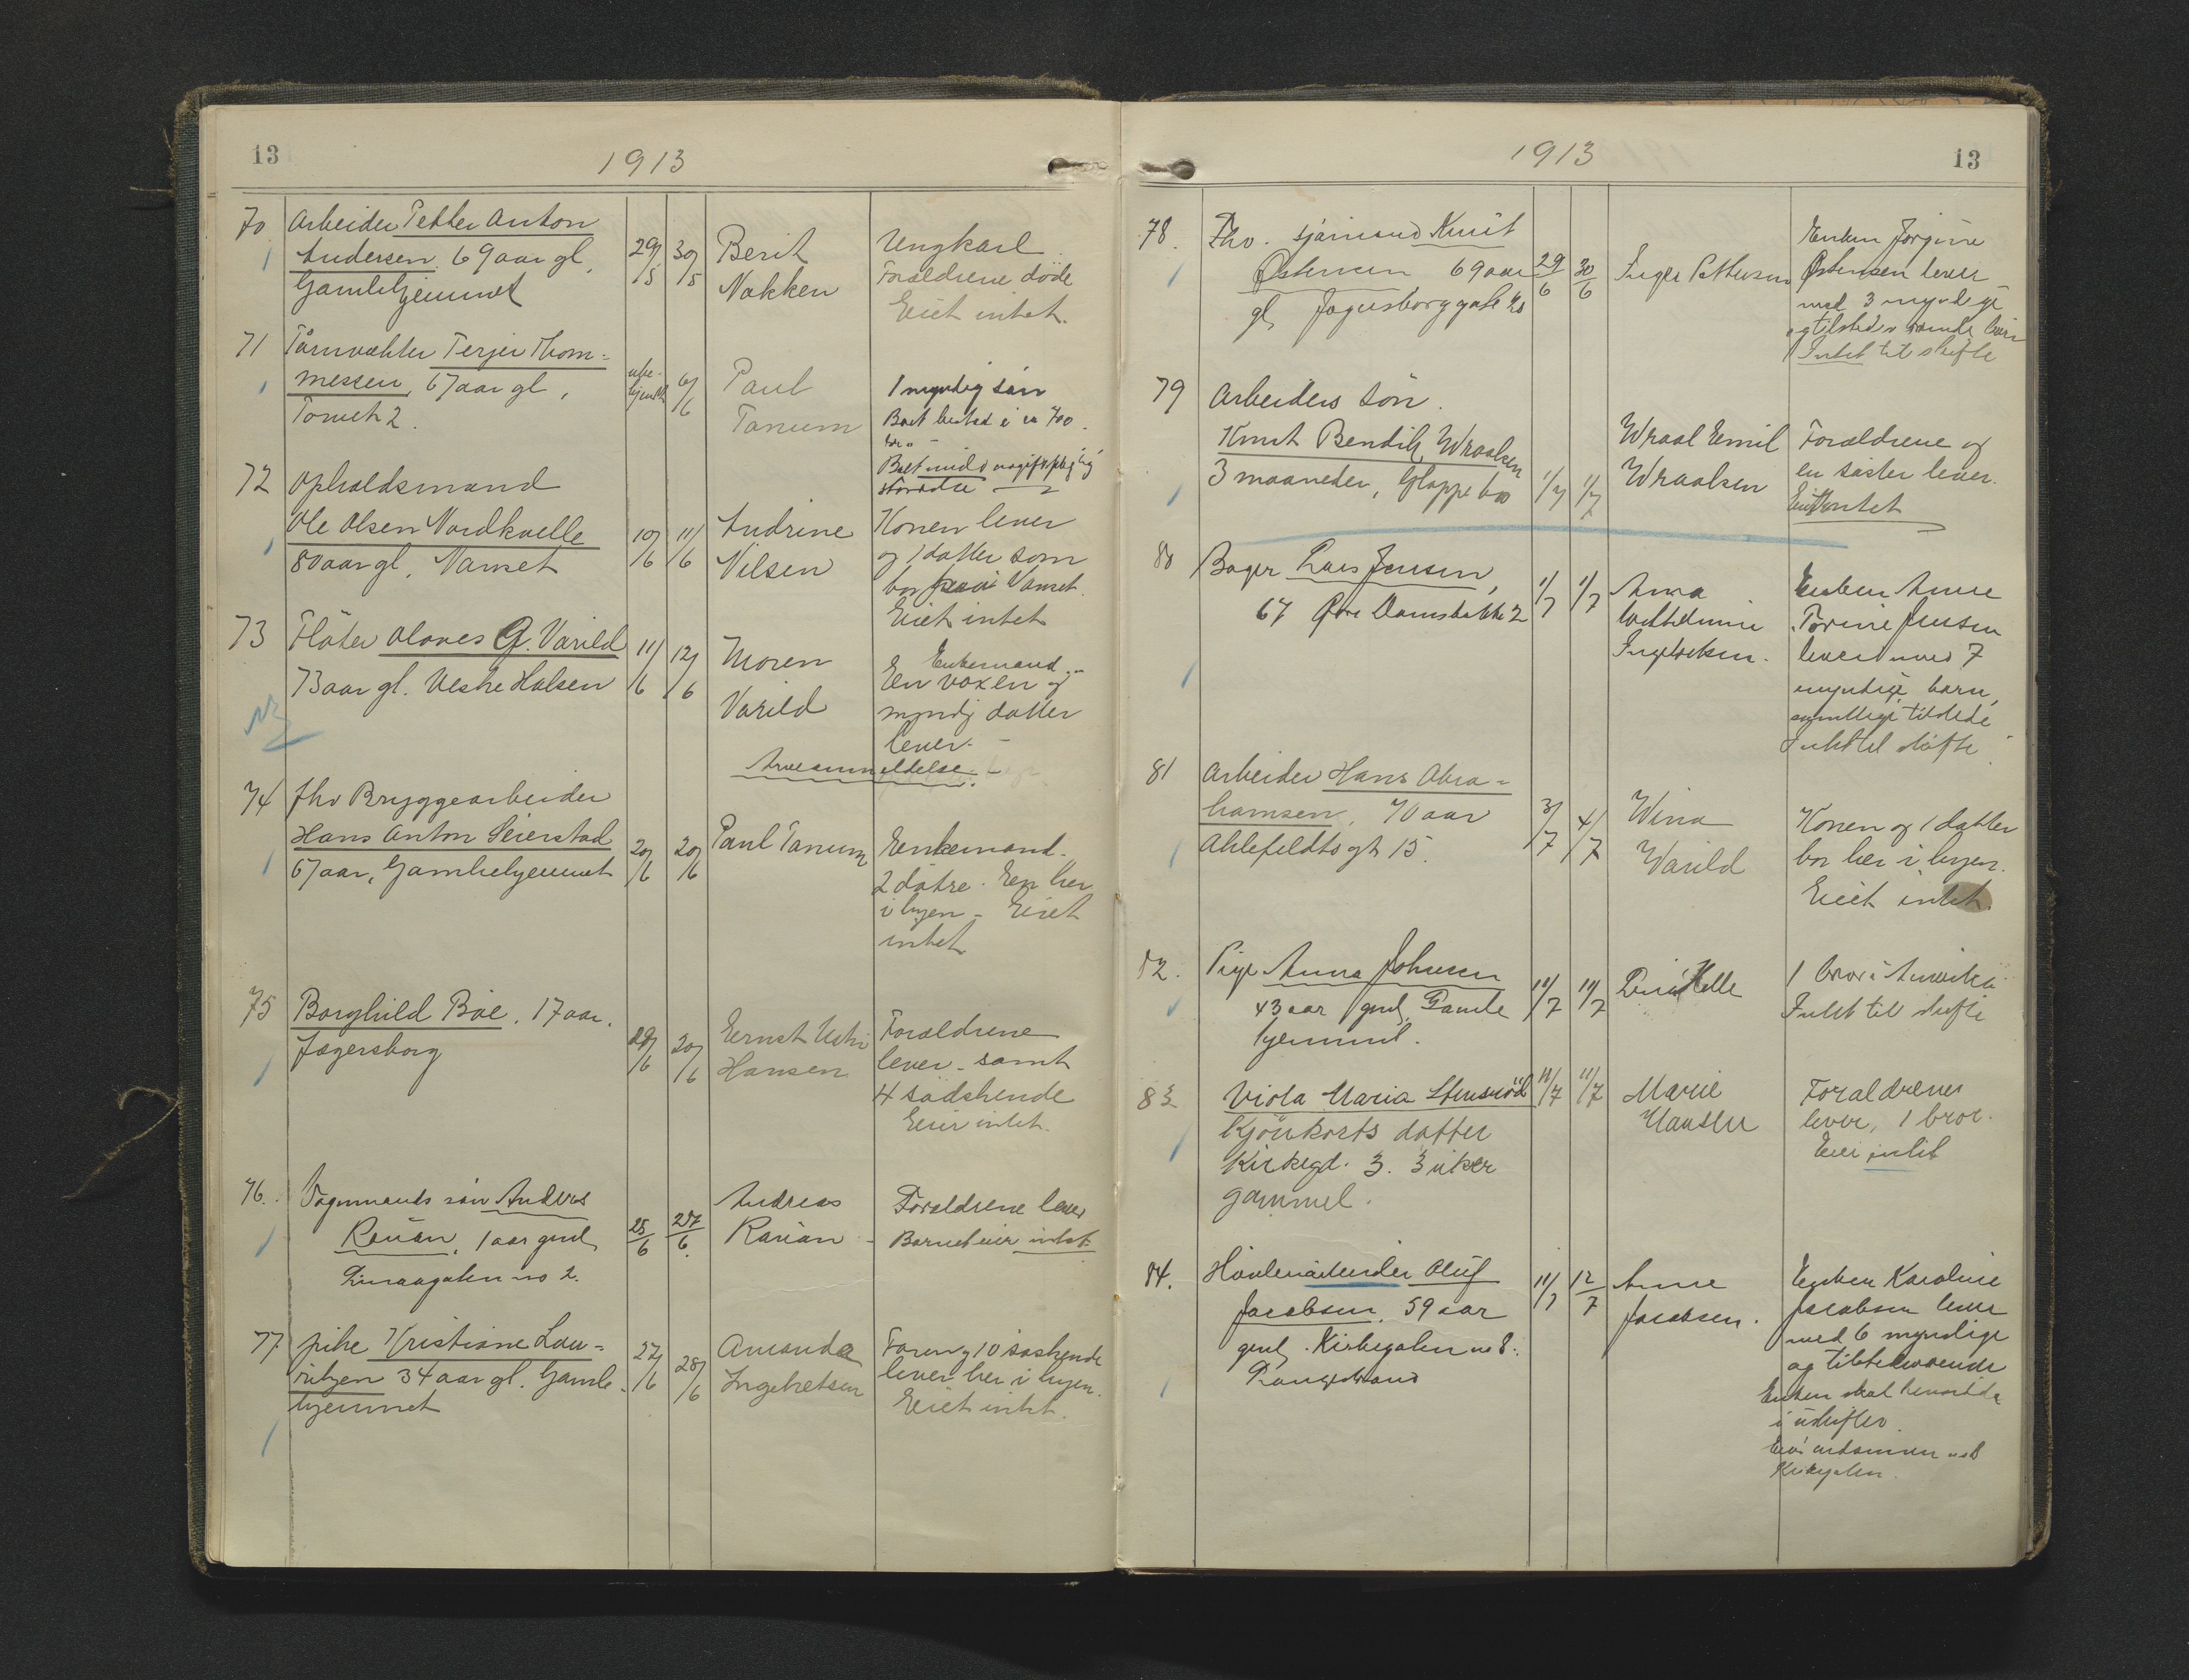 13
1913
70
Arbeider Petter Anton
Andersen. 69 aar gl,
Gamlehjemmet
29/5
30/5
Berit
Nakken
Ungkarl
Forældrene døde
Eiet intet.
71
Tårnvækter Terjer Thom=
messen, 67 aar gl,
Tornet 2.
ube-
kjendt
6/6
Paul
Tanum
1 myndig søn
Boet bestod i ca 700
kr. -
72
Opholdsmand
Ole Olsen Nordkvelle
80 aar gl, Vamset
10/6
11/6
Andrine
Nilsen
Konen lever
og 1 datter som
bor paa Vamset.
Eiet intet
73
Fløter Olaves G. Varild
73 aar gl. Vestre Halsen
11/6
12/6
Varild
Enkemand.-
En voxen og
myndig datter
lever.-
74
fhv Bryggearbeider
Hans Anton Seierstad
67 aar, Gamlehjemmet
20/6
20/6
Paul Tanum
Enkemand.
2 døtre. En her
i byen - Eiet
intet
75
Borghild Bøe. 17 aar.
Jægersborg
20/6
20/6
Ernst
Hansen
Forældrene
lever - samt
4 sødskende
Eier intet.
76.
Vognmands søn Anders
Rauan, 1 aar gml,
no 2.
25/6
Andreas
Rauan
Forældrene lever
Barnet eier intet.
77
pike Kristiane Lau=
ritzen 34 aar gl. Gamle-
hjemmet
27/6
28/6
Amanda
Ingebretsen
Far og 10 søskende
lever her i byen.
Eiet intet.
1913
13
78.
Fhv. sjømand Knut
Østensen 69 aar
gl, Jegersborggate
29/6
30/6
Inger
Enken Jørgine
Østensen lever
med 3 myndige
og tilstedeværende barn
Intet til skifte
79
Arbeiders søn.
Knut Bendik Wraalsen
3 maaneder, Gloppe
1/7
1/7
Wraal Emil
Wraalsen
Forældrene og
en søster lever.
Eiet intet
80
Bager Lars Jensen,
67 Øvre Damsbakke 2
1/7
1/7
Anna
Enken Anne
Torine Jensen
lever med 7
myndige barn,
samtlige tilstede
Intet til skifte
81
Arbeider Hans Abra=
hamsen, 70 aar
Ahlefeldts gt 15.
3/7
4/7
Wina
Warild
Konen og 1 datter
bor her i byen.
Eiet intet.
82.
Pige Anna Johnsen
43 aar gml, Gamle
hjemmet.
10/7
10/7
1 bror i Amerika
Intet til skifte
83
Viola Maria Stensrød
Kjørkarls datter
Kirkegd. 3. 3 uker
gammel.
11/7
11/7
Marie
Hansen
Forældrene
lever, 1 bror.
Eier intet
84.
Høvleriarbeider Oluf
Jacobsen, 59 aar
gml, Kirkegaten no 8.
Langestrand
11/7
12/7
Anne
Jacobsen.
Enken Karoline
Jacobsen lever
med 6 myndige
og tilstedeværende
Enken skal hensidde
i uskiftet.
Kirkegaten.